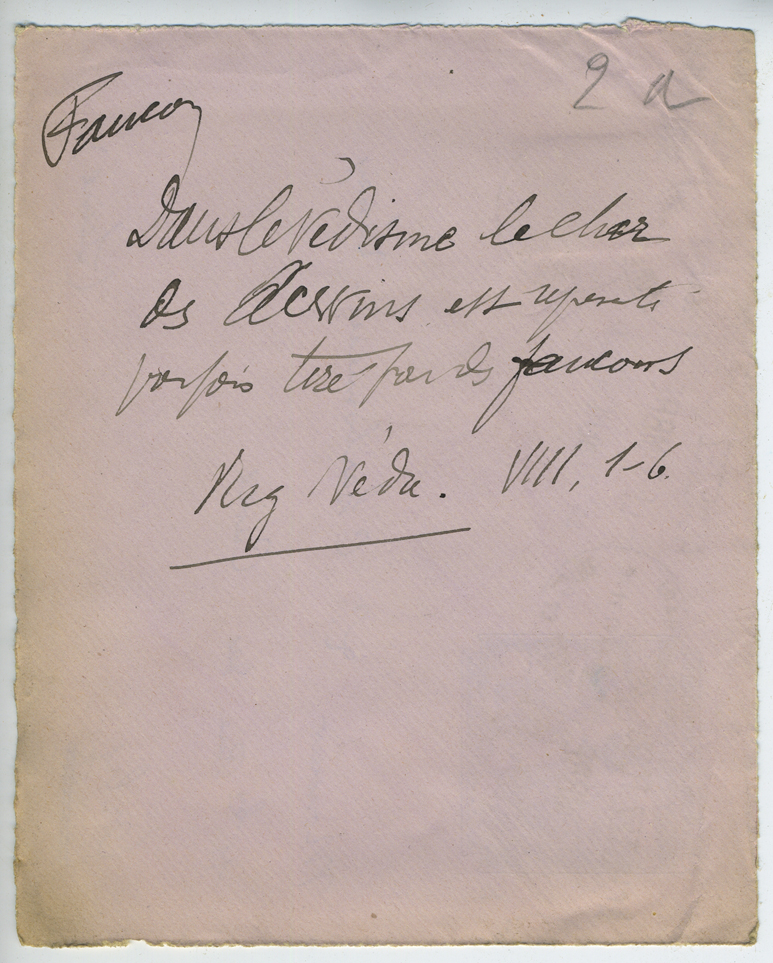 2 a
Faucon
Dans le Védisme le char
des Acwins est représenté
parfois tiré par des faucons
Rig Véda. VIII, 1-6.